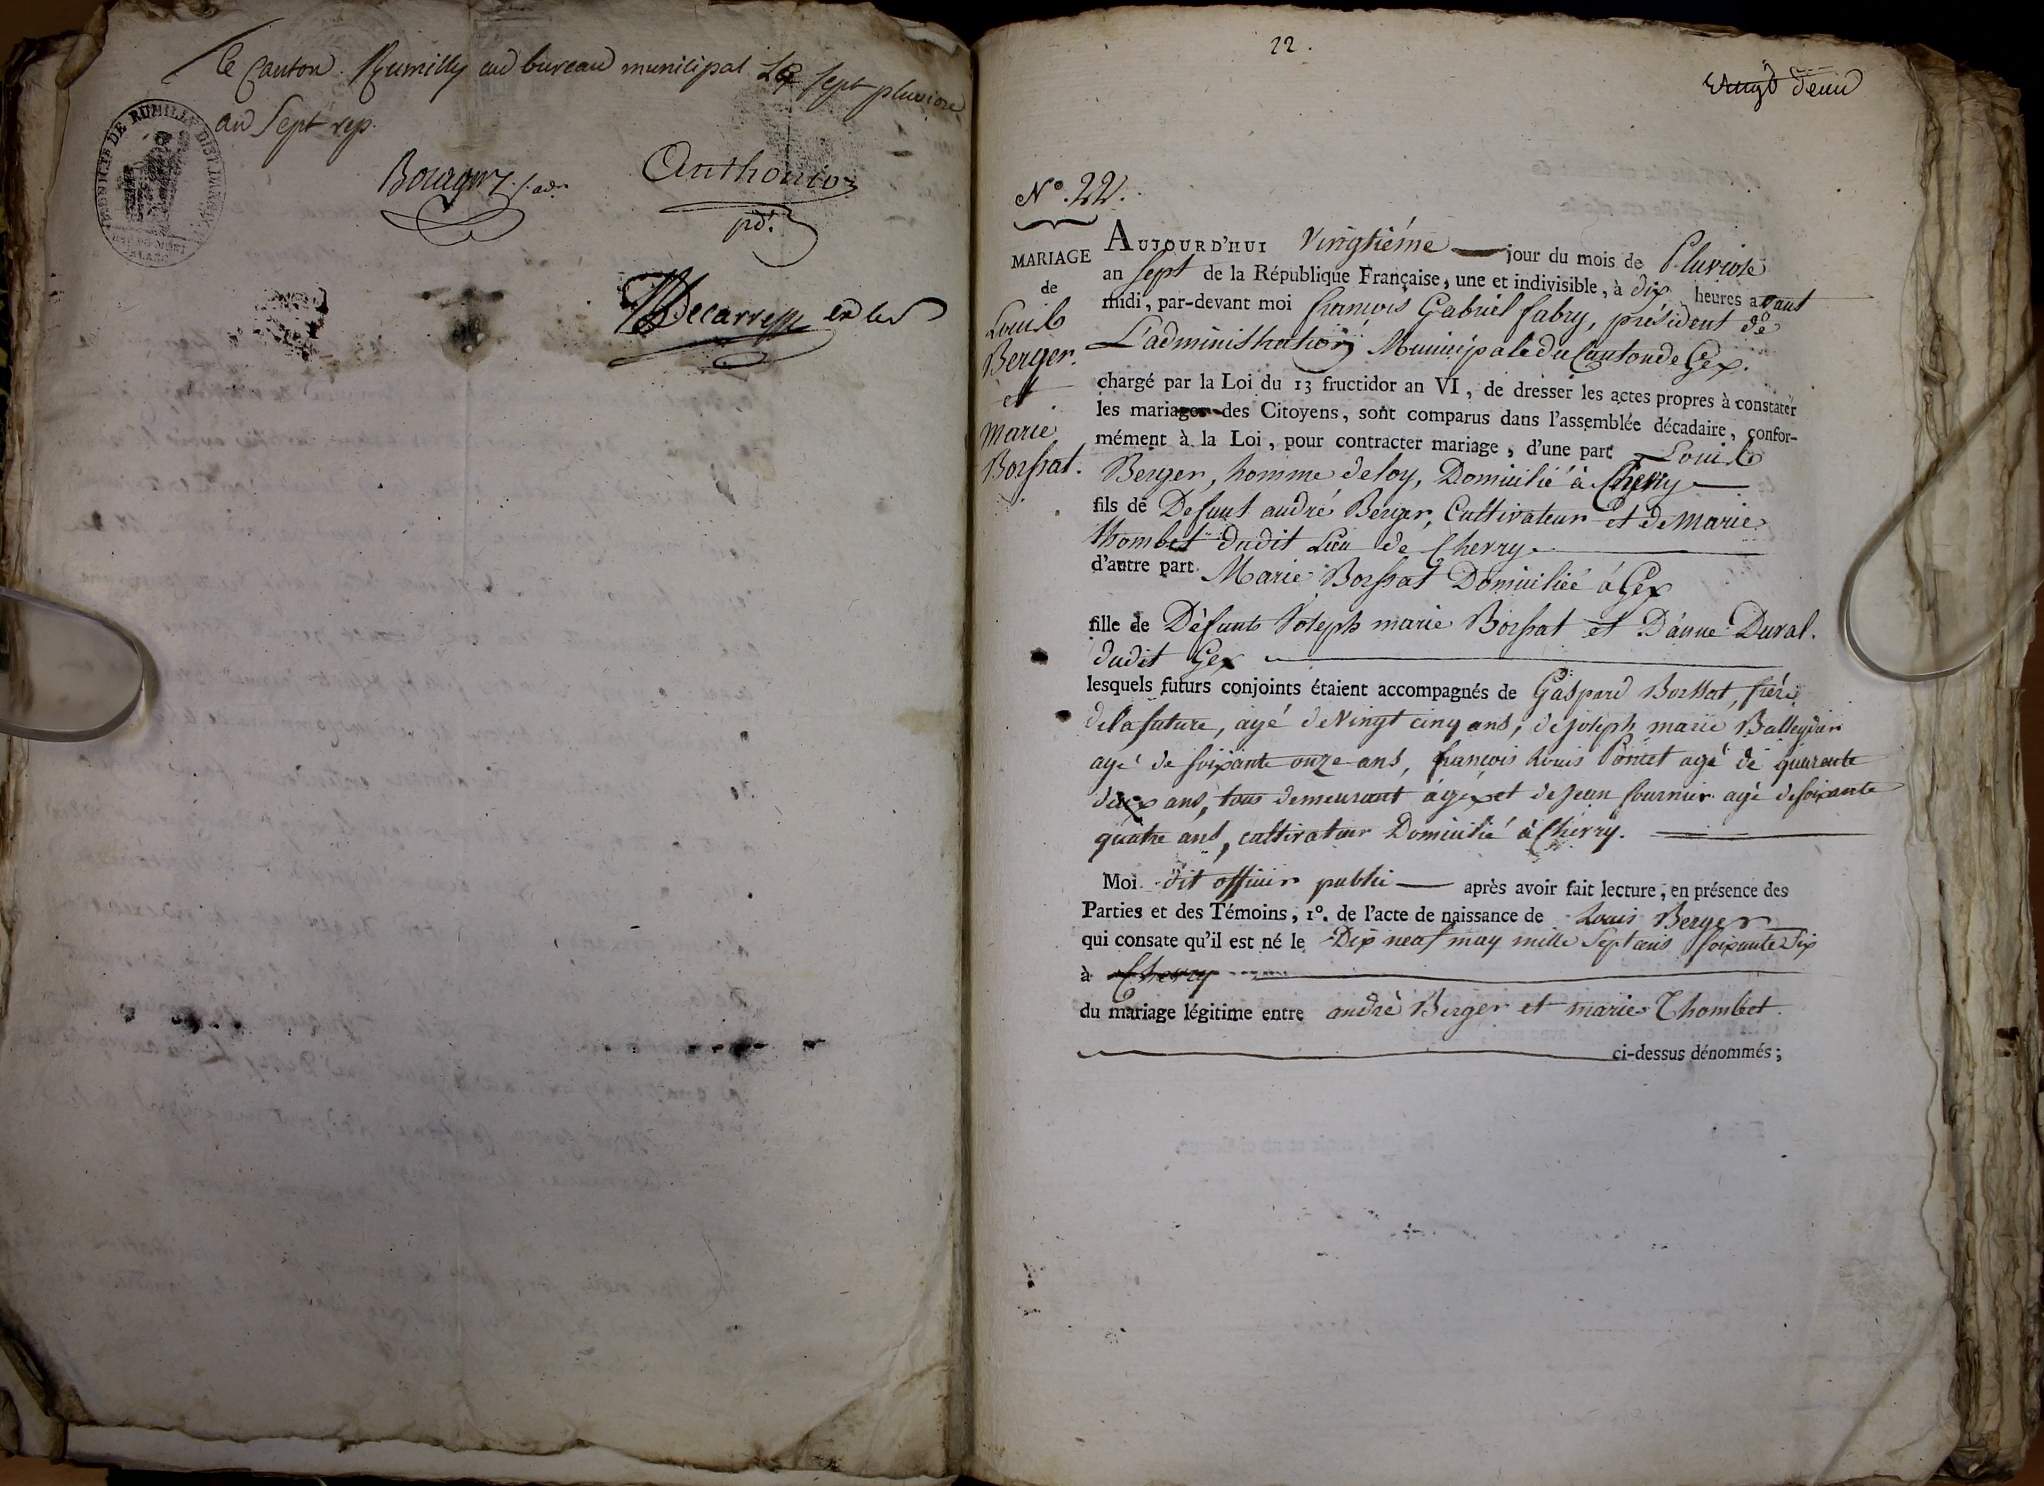 ce Canton. Rumilly au bureau municipal Le sept pluviose
an sept rep.
Anthonioz
pdt.
22.
vingt deux
N°. 22.
MARIAGE
de
Louis
Berger.
et
Marie
Borssat.
AUJOURD'HUI vingtiéme jour du mois de Pluviose
an sept de la République Française, une et indivisible, à dix heures avant
midi, par-devant moi françois Gabriel fabry, président de
L'administration Municipale du Canton de Gex.
chargé par la Loi du 13 fructidor an VI, de dresser les actes propres à constater
les mariages des Citoyens, sont comparus dans l'assemblée décadaire, confor-
mément à la Loi, pour contracter mariage, d'une part Louis
Berger, homme de loy, Domicilié à Chevry
fils de Defunt andré Berger, Cultivateur et de Marie
Thombet dudit Lieu de Chevry
d'autre part Marie Borssat Domiciliée à Gex
fille de Défunts Joseph marie Borssat et D'anne Duval.
dudit Gex
lesquels futurs conjoints étaient accompagnés de Gaspard Borssat, frére
de la future, agé de vingt cinq ans, de joseph marie Balleydier
agé de soixante onze ans, françois Louis Poncet agé de quarente
deux ans, tous demeurant à gex et de Jean fournier agé de soixante
quatre ans, cultivateur Domicilié à Chevry.
Moi dit officier public après avoir fait lecture, en présence des
Parties et des Témoins, 1°. de l'acte de naissance de Louis Berger
qui consate qu'il est né le Dix neuf may mille sept cens soixante six
à Chevry
du mariage légitime entre andré Berger et marie Thombet.
ci-dessus dénommés;